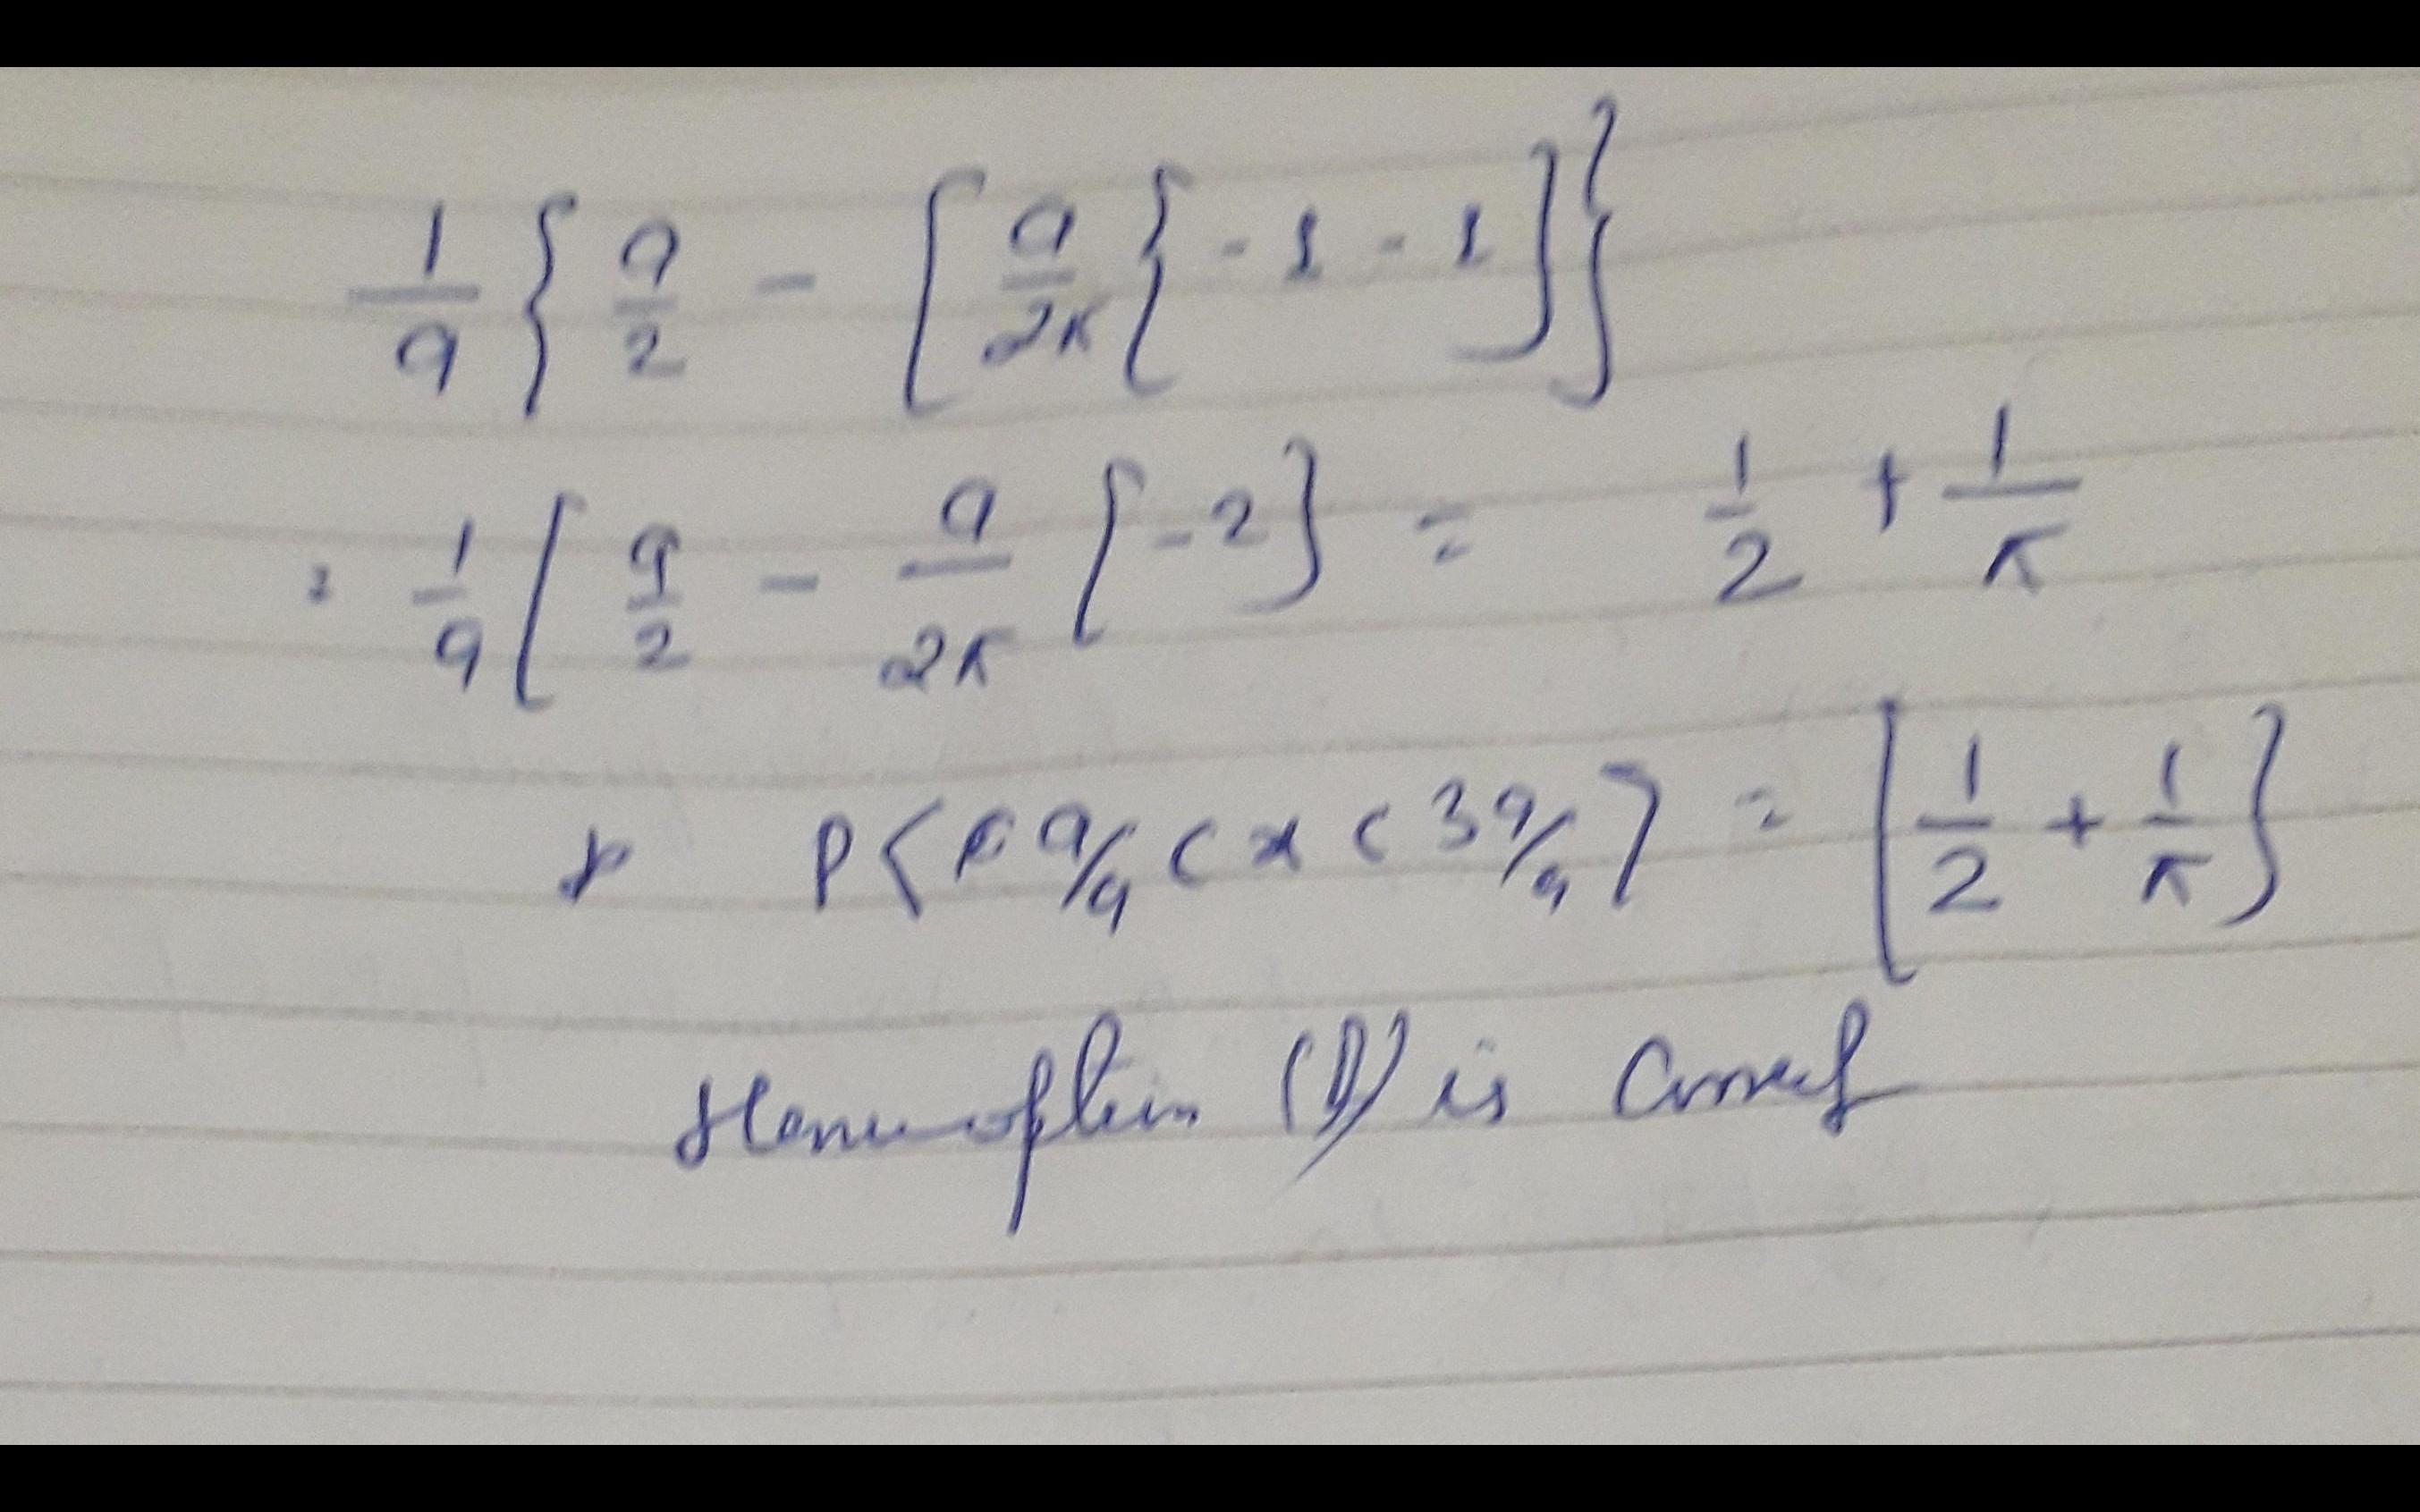 1/a { a/2 - [ a/2π { -1 - 1 ] }
= 1/a [ a/2 - a/2π [ -2 } = 1/2 + 1/π
P( a/4 < x < 3a/4 ) = [ 1/2 + 1/π }
Hence option (D) is correct